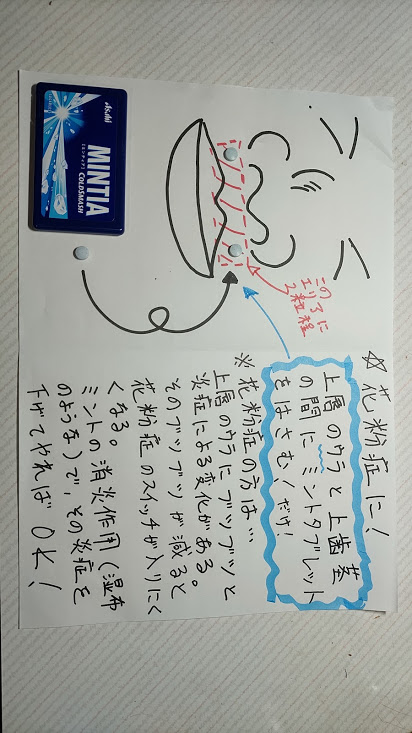 このエ
リアに
2粒程
Asahi
MINTIA
[ミンティア]
COLDSMASH
☆花粉症に!
上唇のウラと上歯茎
の間にミントタブレット
をはさむ!だけ!
※花粉症の方は…
上唇のウラにブツブツと
炎症による変化がある。
そのブツブツが減ると
花粉症のスイッチが入りにく
くなる。
ミントの消炎作用(湿布
のような)で、その炎症を
下げてやればOK!